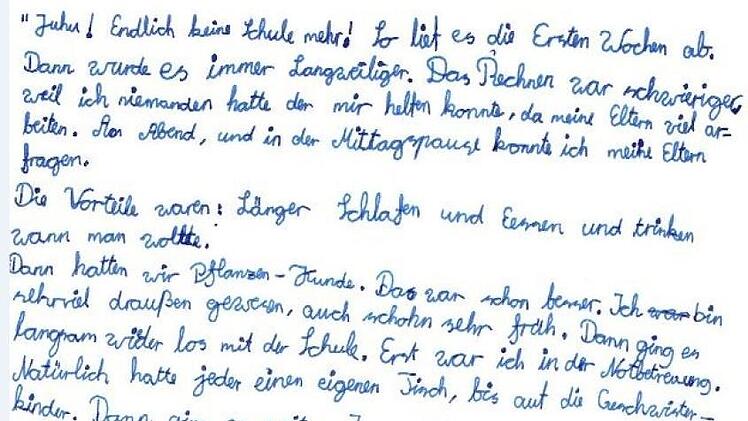 "Juhu! Endlich keine Schule mehr! So lief es die Ersten Wochen ab.
Dann wurde es immer Langweiliger. Das Rechnen war schwieriger,
weil ich niemanden hatte der mir helfen konnte, da meine Eltern viel ar-
beiten. Am Abend, und in der Mittagspause konnte ich meine Eltern
fragen.
Die Vorteile waren: Länger Schlafen und Eessen und trinken
wann man wollte.
Dann hatten wir Pflanzen-Kunde. Das war schon besser. Ich war bin
sehrviel draußen gewesen, auch schohn sehr früh. Dann ging es
langsam wider los mit der Schule. Erst war ich in der Notbetreuung.
Natürlich hatte jeder einen eigenen Tisch, bis auf die Geschwister-
kinder. Dann